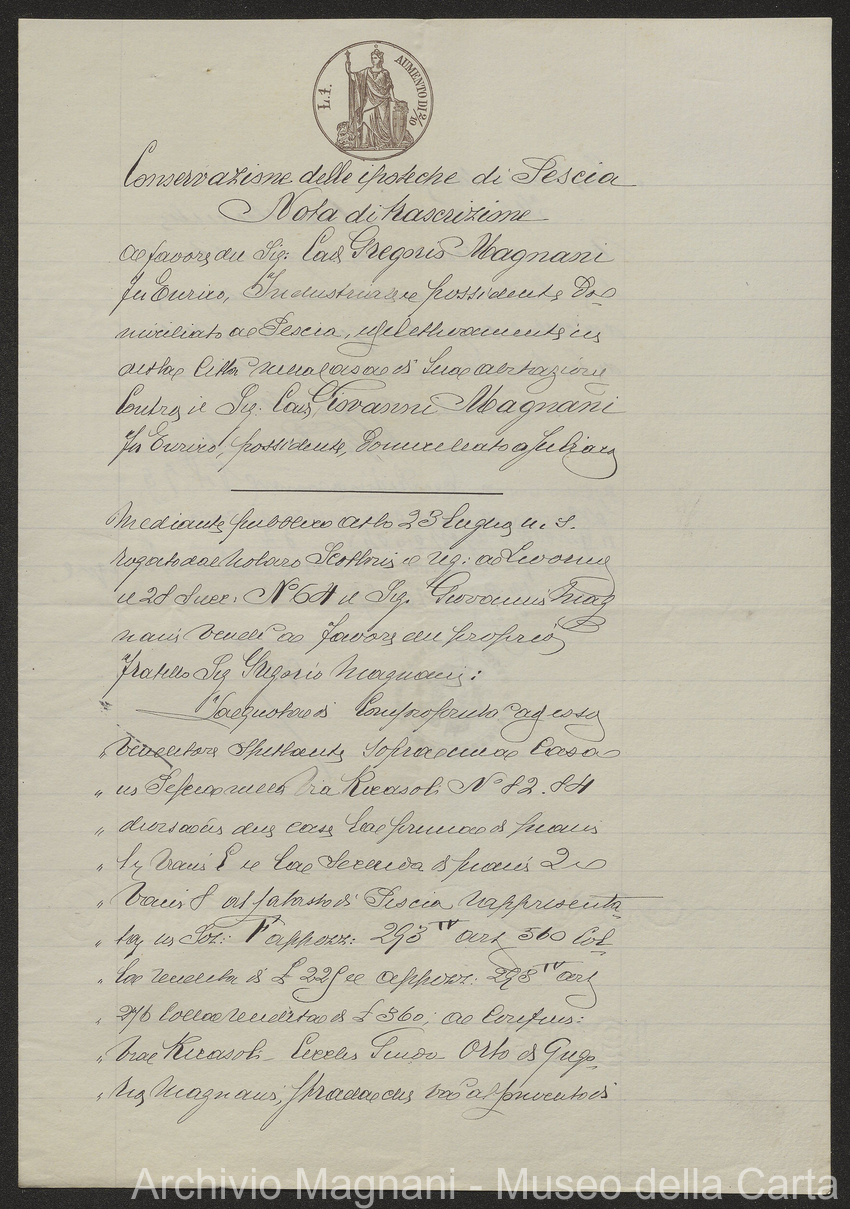 L. 1. AUMENTO DI 2/10
Conservazione delle ipoteche di Pescia
Nota di trascrizione
a favore del Sig: Cav Gregorio Magnani
fu Enrico, Industriale possidente Do-
miciliato a Pescia, in
detta Città nella casa di Sua abitazione
Contro il Sig. Cav Giovanni Magnani
fu Enrico, possidente, Domiciliato a
Mediante pubblico atto 23 Luglio u. s.
rogato dal Notaro e reg: a Livorno
il 28 N° 64 il Sig. Giovanni Mag
nani vende a favore del proprio
fratello Sig Gregorio Magnani:
La quota di Comproprietà ad esso
" venditore spettante sopra una Casa
" in Pescia nella Via Ricasoli N° 82. 84
" divisa in due case la prima di piani
" vani e la Seconda di piani 2 e
" vani 8 al Catasto di Pescia rappresenta-
" ta in Sez: F appezz: 293 IV art 560 Col
" la rendita di £ 225 e appezz: 293 IV art
" 276 Colla rendita di £ 360; a Confini:
" Via Ricasoli - Orto di Grego
" rio Magnani, Strada che va al
Archivio Magnani - Museo della Carta